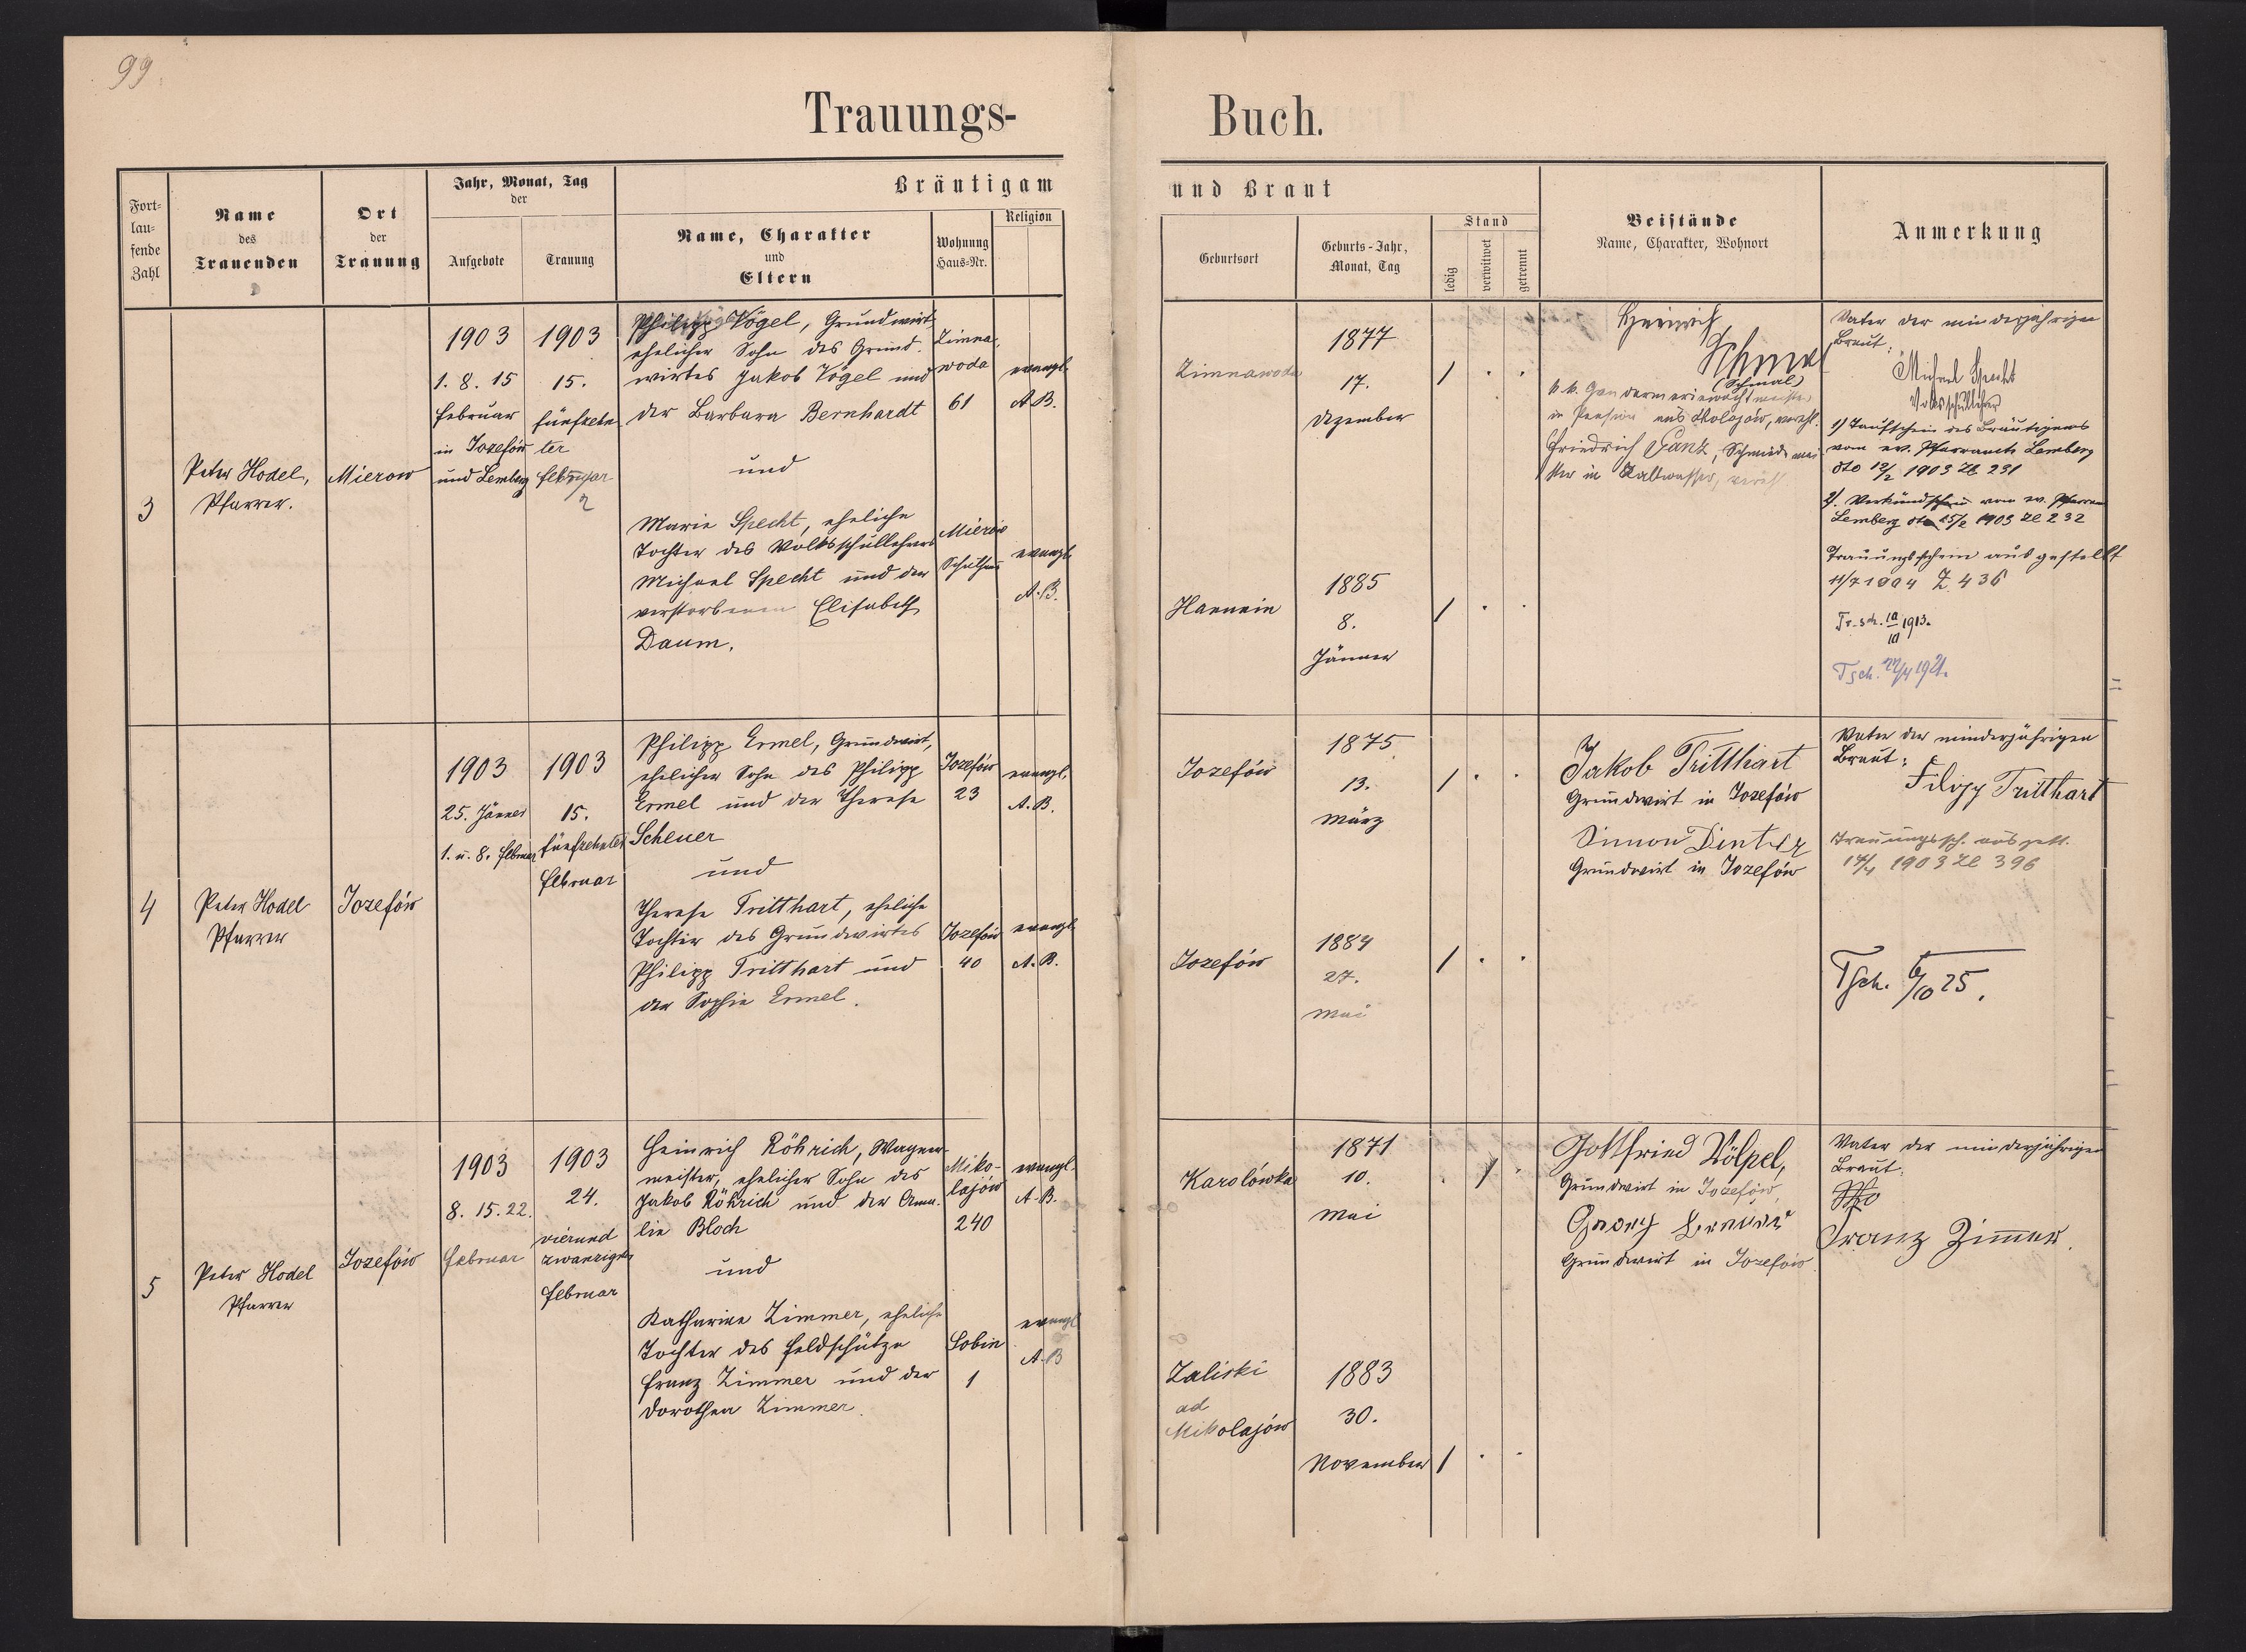 99.
Trauungs-
Buch.
Fort-
lau-
fende
Zahl
Name
des
Trauenden
Ort
der
Trauung
Jahr, Monat, Tag
der
Aufgebote
Trauung
Bräutigam
Name, Charakter
und
Eltern
Wohnung
Haus-Nr.
Religion
und Braut
Geburtsort
Geburts-Jahr,
Monat, Tag
Stand
ledig
verwitwet
getrennt
Beistände
Name, Charakter, Wohnort
Anmerkung
3
Peter Hodel,
Pfarrer.
Mierow
1903
1. 8. 15
Februar
in Josefów
und Lemberg
1903
15.
fünfzehn
ter
Februar
Philipp Vögel, Grundwirt,
ehelicher Sohn des Grund-
wirtes Jakob Vögel und
der Barbara Bernhardt
Zimna-
woda
61
evangl.
A.B.
und
Marie Specht, eheliche
Tochter des Volksschullehrers
Michael Specht und der
verstorbenen Elisabeth
Daum.
Mierów
Schulhaus
evangl.
A.B.
Zimnawoda
1877
17.
Dezember
Hanunin
1885
8.
Jänner
Heinrich
Schmal
(Schmal)
k. k. Gendarmeriewachtmeister
in Pension aus Chołojów, vereh.
Friedrich Ganz, Schmiedemei-
ster in Kaltwasser, vereh.
Vater der minderjährigen
Braut:
Michael Specht
Volksschullehrer
1) Taufschein des Bräutigams
vom ev. Pfarramte Lemberg
dto 12/2 1903 Zl 231
2). Verkündschein vom ev. Pfarram
Lemberg dto 15/2 1903 Zl 232
Trauungsschein ausgestellt
11/7 1904 Z. 436
Tr-sch. 10/10 1913.
Tsch. 27/4 1921.
4
Peter Hodel
Pfarrer
Jozefów
1903
25. Jänner
1. u. 8. Februar
1903
15.
fünfzehnter
Februar
Philipp Ermel, Grundwirt,
ehelicher Sohn des Philipp
Ermel und der Therese
Scheuer
Jozefów
23
evangl.
A.B.
und
Therese Tritthart, eheliche
Tochter des Grundwirtes
Philipp Tritthart und
der Sophie Ermel.
Jozefów
40
evangl.
A.B.
Jozefów
1875
13.
März
Jozefów
1884
27.
Mai
Jakob Tritthart
Grundwirt in Jozefów
Simon Dinter
Grundwirt in Jozefów
Vater der minderjährigen
Braut:
Filipp Tritthart
Trauungssch. ausgest.
14/4 1903 Zl 396
Tsch. 6/10 25.
5
Peter Hodel
Pfarrer
Jozefów
1903
8. 15. 22.
Februar
1903
24.
vierund
zwanzigster
Februar
Heinrich Röhrich, Wagner-
meister, ehelicher Sohn des
Jakob Röhrich und der Ama-
lie Bloch
Miko-
lajów
240
evangl.
A.B.
und
Katharine Zimmer, eheliche
Tochter des Feldschütze
Franz Zimmer und der
Dorothea Zimmer.
Sobin
1
evangl.
A.B
Karolówka
1871
10.
Mai
Zaliski
ad
Mikolajów
1883
30.
November
Gottfried Völpel,
Grundwirt in Jozefów
Georg
Grundwirt in Jozefów.
Vater der minderjährigen
Braut:
Franz Zimmer.